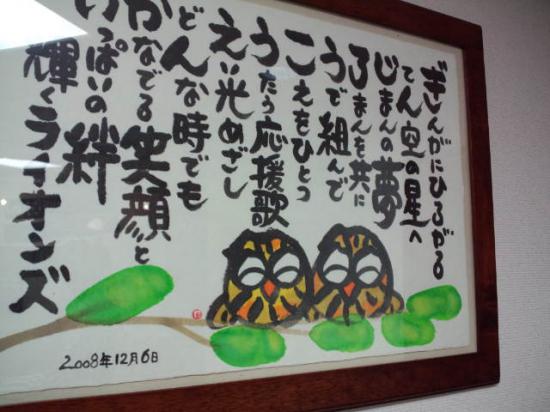 ぎんがにひろがる
てん空の星へ
じまんの夢
ろまんを共に
うで組んで
こえをひとつ
うたう応援歌
えい光めざし
どんな時でも
かなでる笑顔と
いっぱいの絆
輝くライオンズ
2008年12月6日